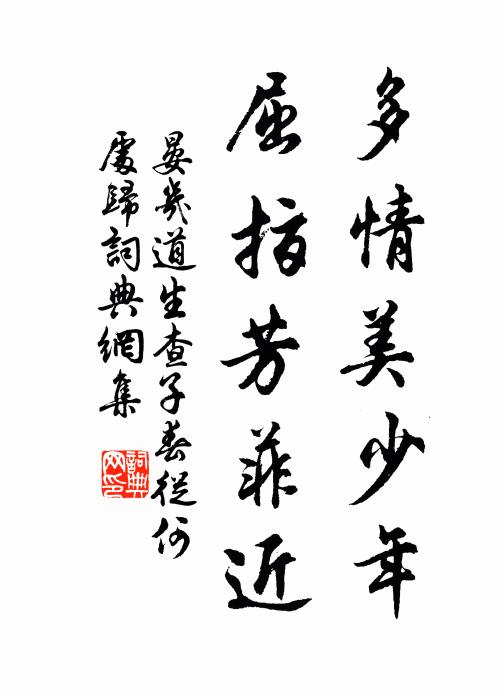 多情美少年
屈指芳菲近
晏幾道生查子春從何
處歸詞典網集
詞典
网印